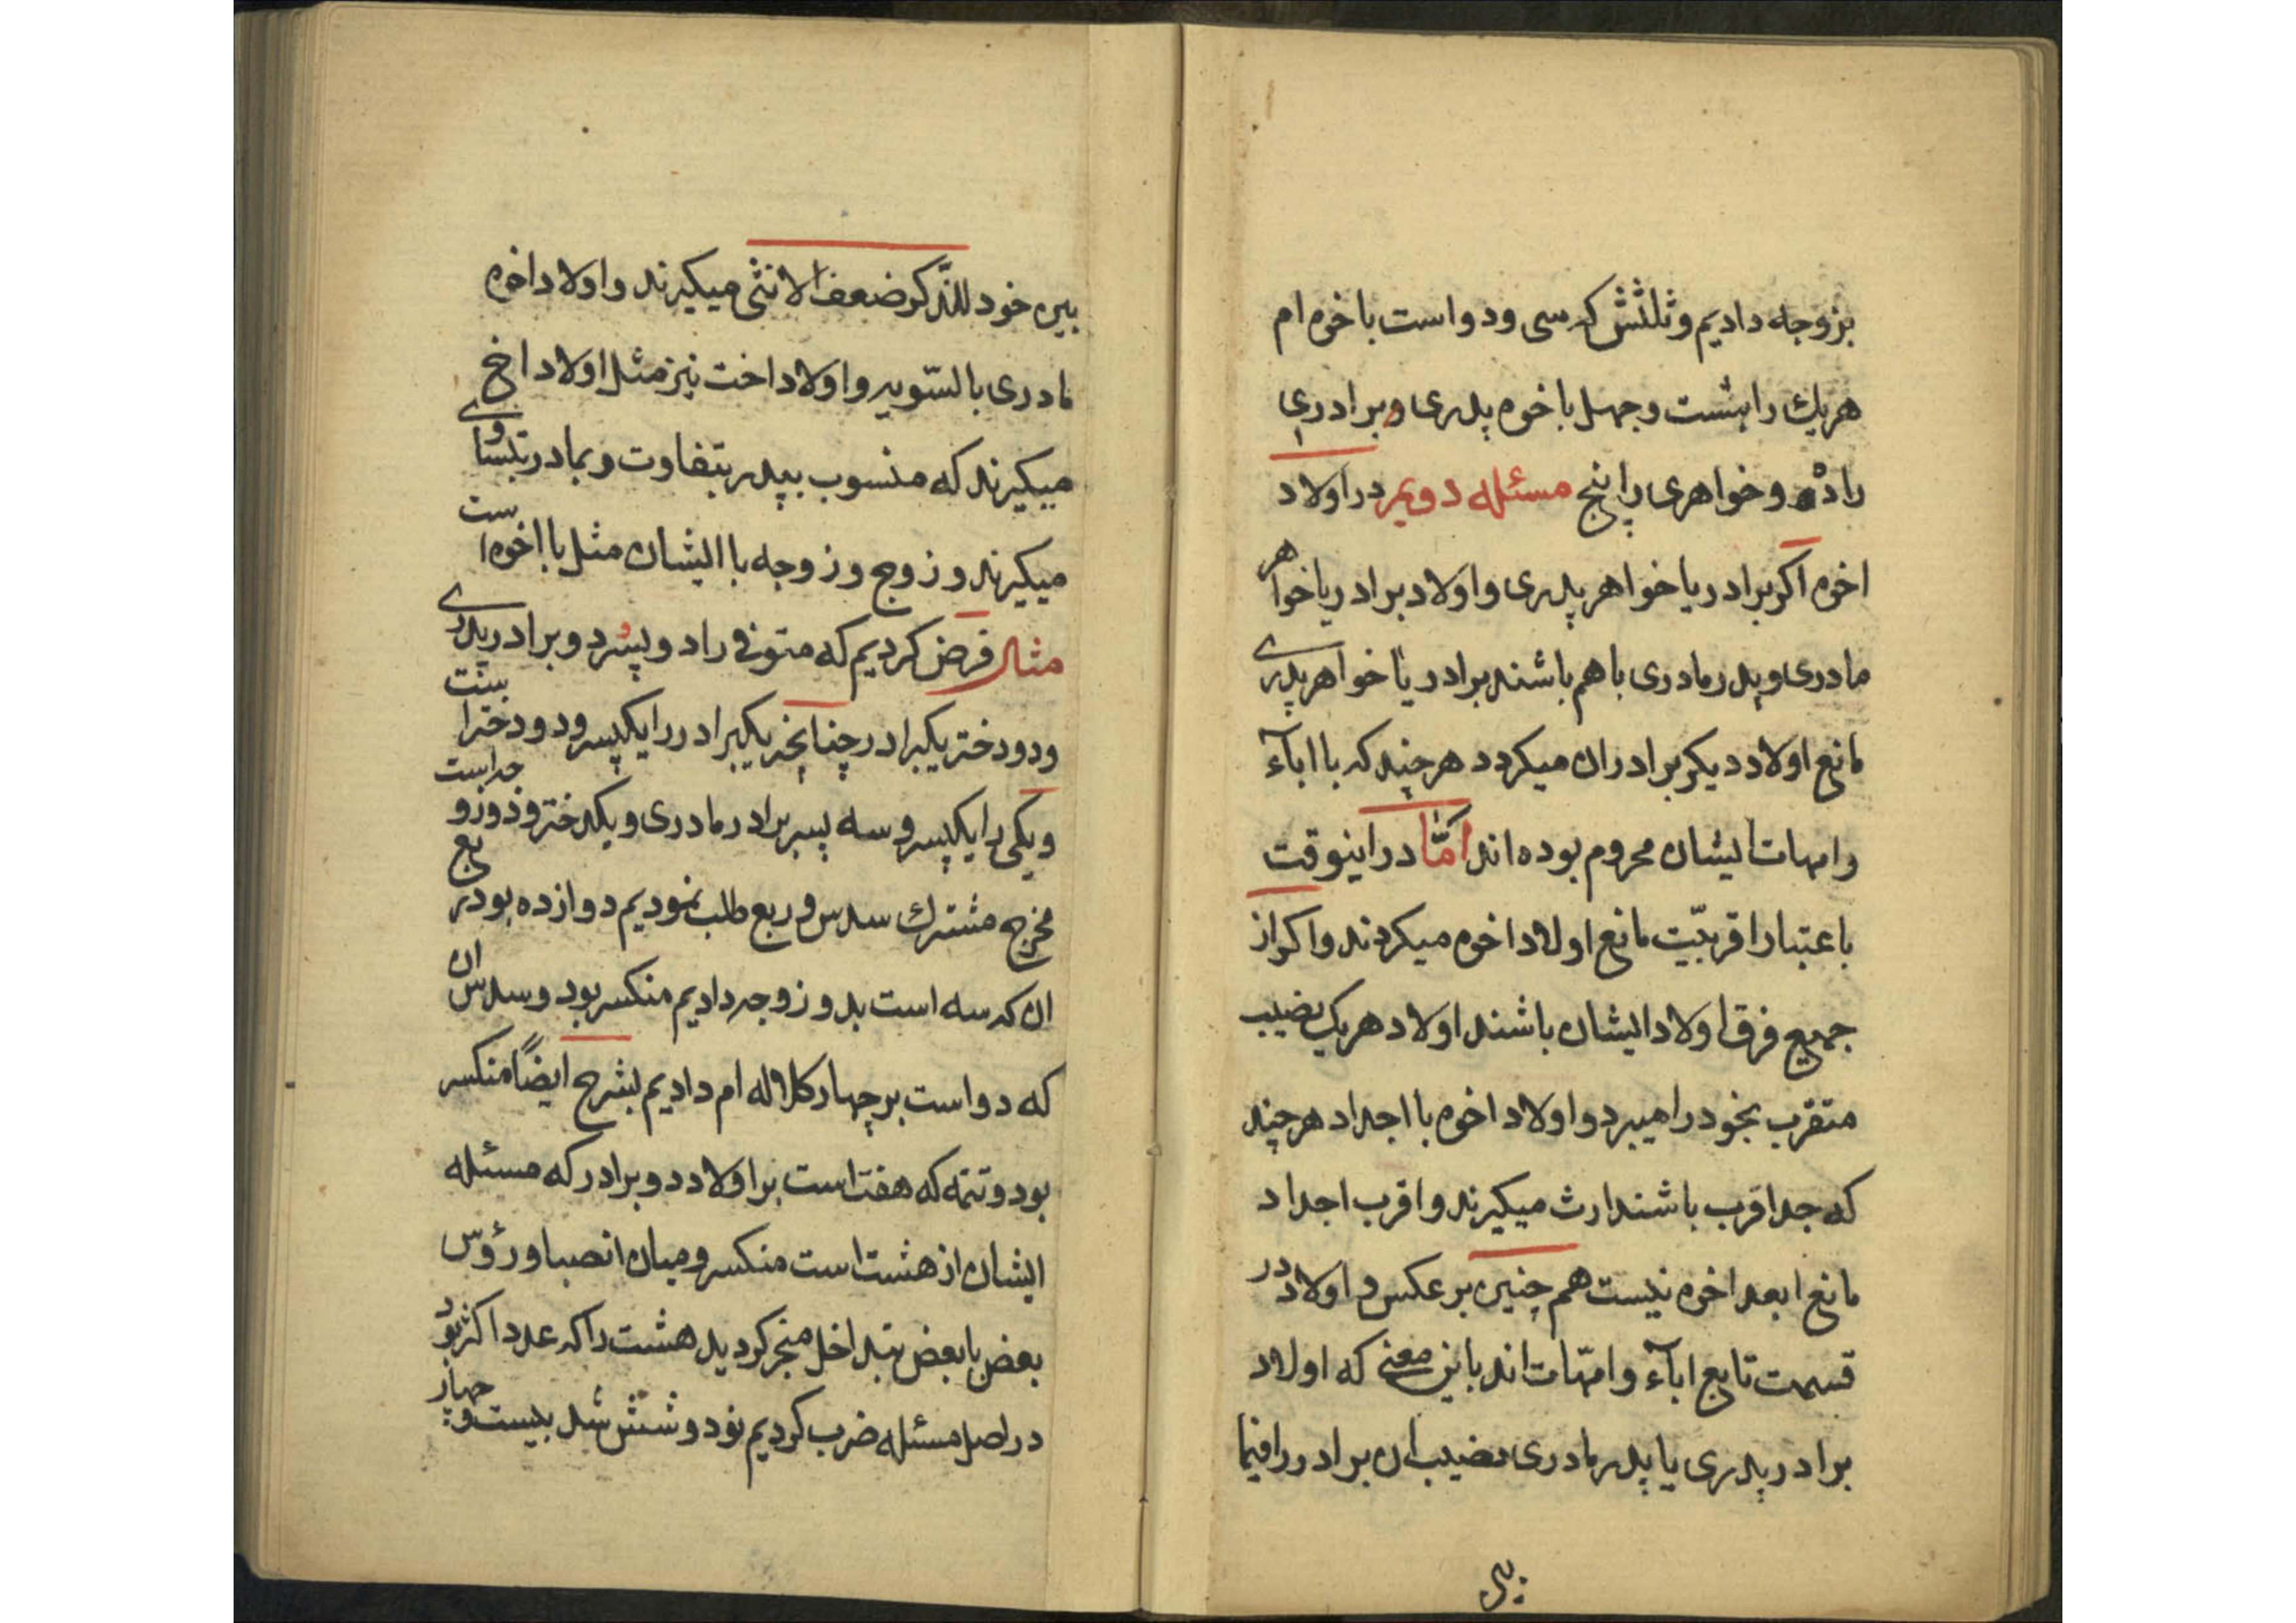 بزوجه دادیم و ثلثش که سی و دو است باخوه ام
هریك را هشت و چهل باخوه پدری و برادری
را ده و خواهری را پنج مسئله دویم در اولاد
اخوه اکر برادر یا خواهر پدری و اولاد برادر یا خواهر
مادری و پدر مادری با هم باشند برادر یا خواهر پدری
مانع اولاد دیکر برادران میکردد هر چند که با اباء
و امهات ایشان محروم بوده اند امّا در اینوقت
باعتبار اقربیّت مانع اولاد اخوه میکردند و اکر از
جمیع فرق اولاد ایشان باشند اولاد هر یک نصیب
متقرب بخود را میبرد و اولاد اخوه با اجداد هر چند
که جد اقرب باشند ارث میکیرند و اقرب اجداد
مانع ابعد اخوه نیست هم چنین بر عکس و اولاد در
قسمت تابع اباء و امّهات اند باین معنی که اولاد
برادر پدری یا پدر مادری نصیب ان برادر را فیما
بین
بین خود للذّکر ضعف الانثی میکیرند و اولاد اخوه
مادری بالسّویه و اولاد اخت نیز مثل اولاد اخ
میکیرند که منسوب بپدر بتفاوت و بمادر بتساوی
میکیرند و زوج و زوجه با ایشان مثل با اخوه است
مثال فرض کردیم که متوفی را دو پسر دو برادر پدری
و دو دختر یکبرادر چنانچه یکبرادر را یکپسر و دو دختر است
و یکی را یکپسر و سه پسر برادر مادری و یکدختر و دو زوجه است
مخرج مشترك سدس و ربع طلب نمودیم دوازده بود ربع
ان که سه است بدو زوجه دادیم منکسر بود و سدس ان
که دو است بر چهار کلاله ام دادیم بشرح ایضاً منکسر
بود و تتمه که هفت است بر اولاد دو برادر که مسئله
ایشان از هشت است منکسر و میان انصبا و رؤس
بعض با بعض بتداخل منجر کردید هشت را که عدد اکثر بود
در اصل مسئله ضرب کردیم نود و شش شد بیست و چهار